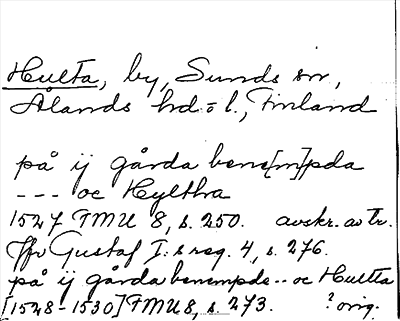 Hulta, by, Sunds sn,
Ålands hd o l., Finland
på ij gårda bene[m]pda
--- oc Hyltha
1527 FMU 8, s. 250. avskr. av tr.
Jfr Gustaf I:s reg. 4, s. 276.
på ij gårda benempde -- oc Hultta
[1528-1530] FMU 8, s. 273. ? orig.